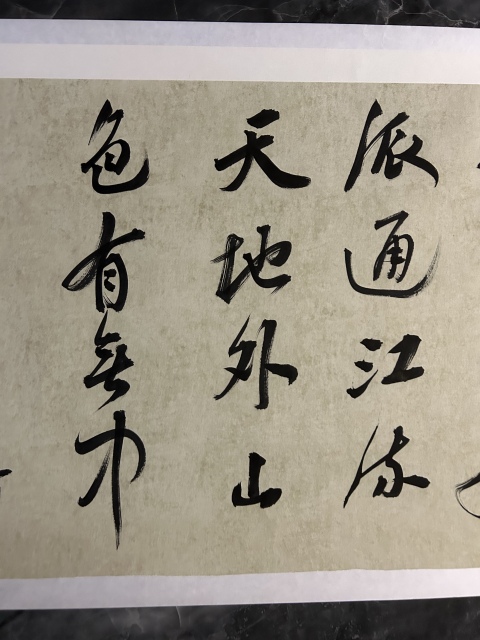 派通江流
天地外山
色有無中